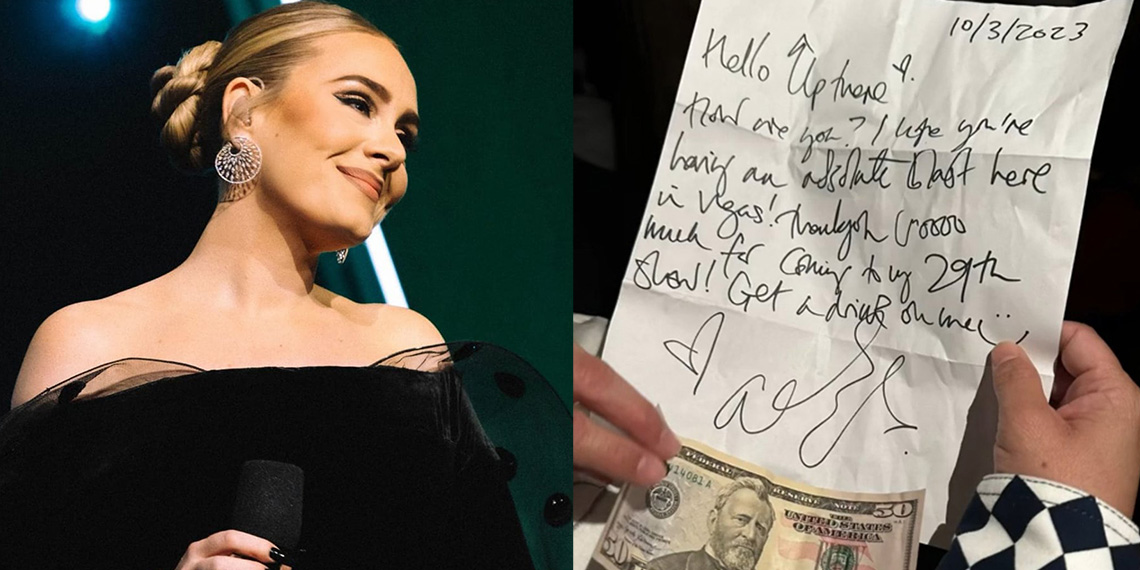 10/3/2023
Hello Up there
How are you? I hope you're
having an absolute blast here
in Vegas! Thankyou soooo
much for coming to my 29th
show! Get a drink on me
FEDERAL RESERVE NOTE
50
14081A
THE
UNITED STATES
OF AMERICA
50